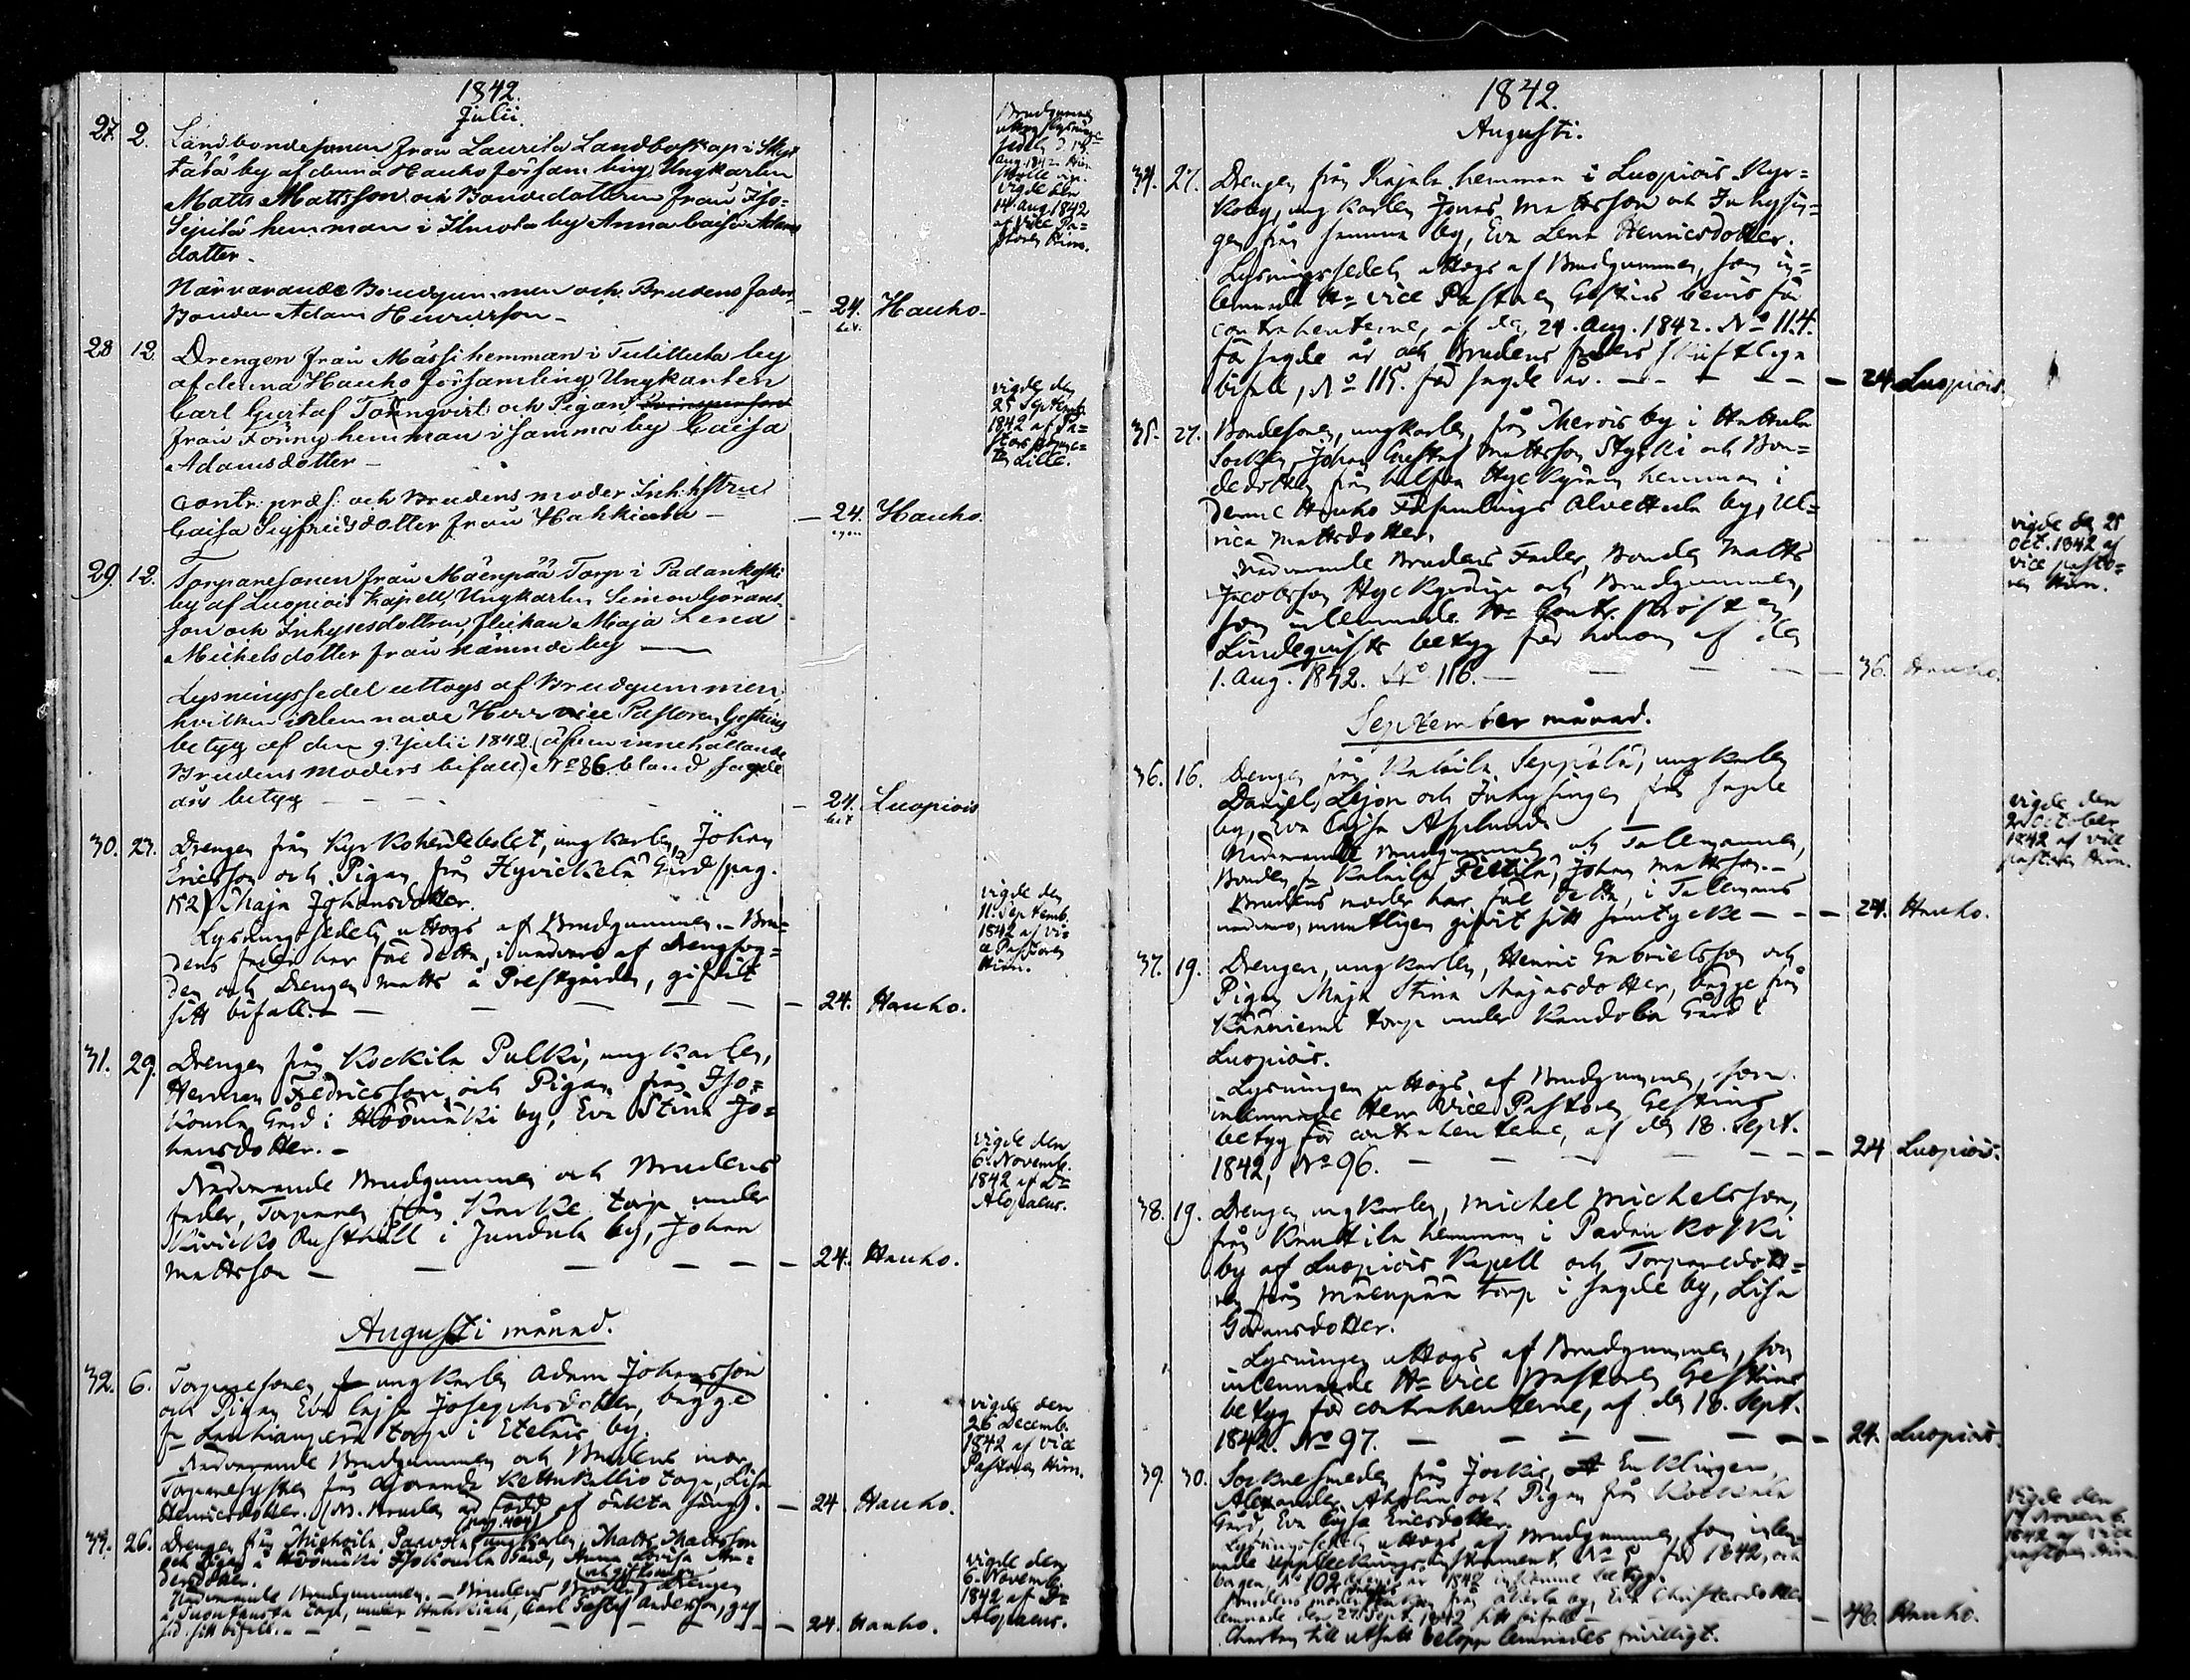 1842.
Julii
27. 2. Landbondesonen från Laurila Landbosk:ap i Skyt
tälä by af denna Hauho församling, Ungkarlen
Matts Mattsson och Bondedottren från Iso=
Seppilä hemman i Ilmola by Anna Caisa Adams
dotter.
Närvarande Brudgummen och Brudens fader,
Bonden Adam Henricsson - 24. Hauho.
Brudgummen
uttog Lysnings=
sedeln d. 13.
Aug. 1842.
vigde den
14 Aug 1842
af vice Pa=
storen Hirn.
28 12. Drengen från Mässi hemman i Tulittula by
af denna Hauho församling, Ungkarlen
Carl Gustaf Tornqvist och Pigan
från Tönny hemman i samma by Caisa
Adamsdotter -
Contr: præs: och Brudens moder Inh:hstru
Caisa Sigfridsdotter från Hahkiala - 24. Hauho.
vigde den
25 Septemb.
1842 af Pa=
stors
Lille.
29. 12. Torparesonen från Mäenpää Torp i Padankoski
by af Luopiois Kapell, Ungkarlen Simon Görans=
son och Inhysesdottren, flickan Maja Lena
Michelsdotter från nämnde by
Lysningssedel uttogs af Brudgummen,
hvilken inlemnade Herr vice Pastoren Gestrins
betyg af den 9. Julii 1842. (äfven innehållande
Brudens moders bifall) No 86. bland sagde
års betyg - 24. Luopiois
30. 23. Drengen från Kyrkoherdebolet, ungkarlen, Johan
Ericsson och Pigan från Hyvickälä Gård (pag.
152) Maja Johansdotter.
Lysningssedeln uttogs af Brudgummen. - Bru=
dens fader har för detta, i närvaro af Drengfog=
den och Drengen Matts å Prestgården, gifvit
sitt bifall. - 24. Hauho.
vigde den
11. Septemb.
1842 af vi=
ce Pastoren
Hirn.
31. 29. Drengen från Kockila Pulki, ungkarlen,
Herman Fredricsson, och Pigan från Iso=
Komla Gård i Miömäki by, Eva Stina Jo=
hansdotter. -
Närvarande Brudgummen och Brudens
fader, Torparen från Karke torp under
Kivicko Rusthåll i Jundula by, Johan
Mattsson - 24. Hauho.
vigde den
6. Novemb.
1842 af Dr
Alopaeus.
Augusti månad.
32. 6. Torparesonen, ungkarlen Adam Johansson
och Pigan Eva Cajsa Josephsdotter, begge
fr. Lauhianperä torp i Etelais by.
Närvarande Brudgummen och Brudens mor,
Torparehustrun från Kettukallio torp, Lisa
Henricsdotter. (N. Bruden är född af oäkta säng). - 24. Hauho.
vigde den
26 Decemb.
1842 af vice
Pastoren Hirn.
26. Drengen från Michoila Parvola, ungkarlen, Matts Mattsson
och Pigan å Miömäki Isokomla Gård, Anna Lovisa An=
dersdotter.
Närvarande Brudgummen. - Brudens Broder Drengen
å torp, under Hahkiala, Carl Gustaf Andersson, gaf
sitt bifall. - 24. Hauho.
vigde den
6. Novemb.
1842 af Dr
Alopaeus.
1842.
Augusti.
34. 27. Drengen från Rajala hemman i Luopiois Kyr=
koby, ungkarlen Jonas Mattsson och Inhysin=
gen från samma by, Eva Lena Henricsdotter.
Lysningssedeln uttogs af Brudgummen, som in=
lemnade Hr vice Pastoren Gestrins bevis för
contrahenterne, af den 24. Aug. 1842. No 114.
för sagde år och Brudens faders skriftliga
bifall, No 115. för sagde år. - 24. Luopiois.
35. 27. Bondesonen, ungkarlen, från Mervis by i Hattula
Socken, Johan Gustaf Mattsson Stycki och Bon=
dedottren från halfva Hyckyrän hemman i
denne Hauho Församlings Alvettula by, Ul=
rica Mattsdotter.
Närvarande Brudens Fader, Bonden Matts
Jacobsson Hyckyrän och Brudgummen,
som inlemnade Hr Contr. Prosten
Lindequists betyg för honom af den
1. Aug. 1842. No 116. - 36. Hauho.
vigde den 25
Oct. 1842 af
vice pasto=
ren Hirn.
September månad.
36. 16. Drengen från Kalaila Seppälä, ungkarlen
Daniel Lejon och Inhysingen från sagde
by, Eva Cajsa Asplund.
Närvarande Brudgummen och Talemannen,
Bonden fr. Kalaila Pietilä, Johan Mattsson. -
Brudens moder har före detta, i Talemans
närvaro, muntligen gifvit sitt samtycke - 24. Hauho.
vigde den
2. October
1842 af vice
pastoren Hirn.
37. 19. Drengen, ungkarlen, Henric Gabrielsson och
Pigan Maja Stina Majasdotter, bägge från
Känniemi torp under Kandola Gård i
Luopiois.
Lysningen uttogs af Brudgummen, som
inlemnade Herr Vice Pastoren Gestrins
betyg för contrahenterne, af den 18. Sept.
1842, No 96. - 24 Luopiois.
38. 19. Drengen, ungkarlen, Michel Michelsson,
från Knuttila hemman i Padankoski
by af Luopiois Kapell och Torparedott=
ren från Mäenpää torp i sagde by, Lisa
Göransdotter.
Lysningen uttogs af Brudgummen, som
inlemnade Hr vice pastoren Gestrins
betyg för contrahenterne, af den 18. Sept.
1842. No 97. - 24. Luopiois.
39. 30. Socknesmeden från Jockis, Enklingen
Alexander Ahlholm och Pigan från Kockala
Gård, Eva Cajsa Ericsdotter.
Lysningssedeln uttogs af Brudgummen, som inlem=
nade uppteckningsinstrument No 5 för 1842, och
No 102 ibland år 1842 inkomne betyg.
Brudens moder från Alvela by, Eva Christersdotter
lemnade den 27. Sept. 1842 sitt bifall -
Charten till utsatt belopp lemnades frivilligt. 48. Hauho.
vigde den
17 Novemb.
1842 af vice
pastoren Hirn.